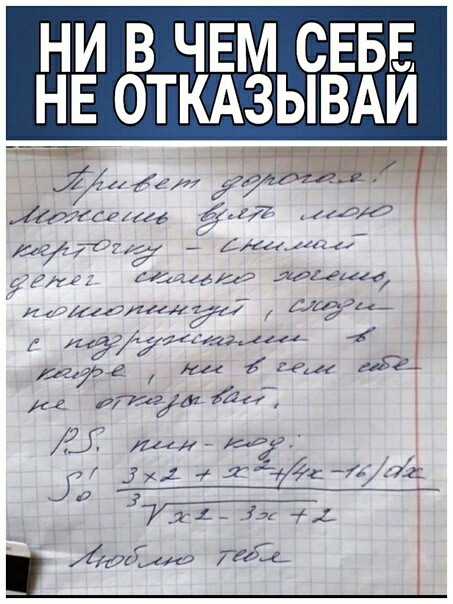 НИ В ЧЕМ СЕБЕ
НЕ ОТКАЗЫВАЙ
Привет дорогая!
Можешь взять мою
карточку - снимай
денег сколько хочешь,
пошопингуй, сходи
с подружками в
кафе, ни в чем себе
не отказывай.
P.S. пин-код:
∫₀¹ (3x2 + x² + (4x - 16) dx) / ³√(x2 - 3x + 2)
Люблю тебя